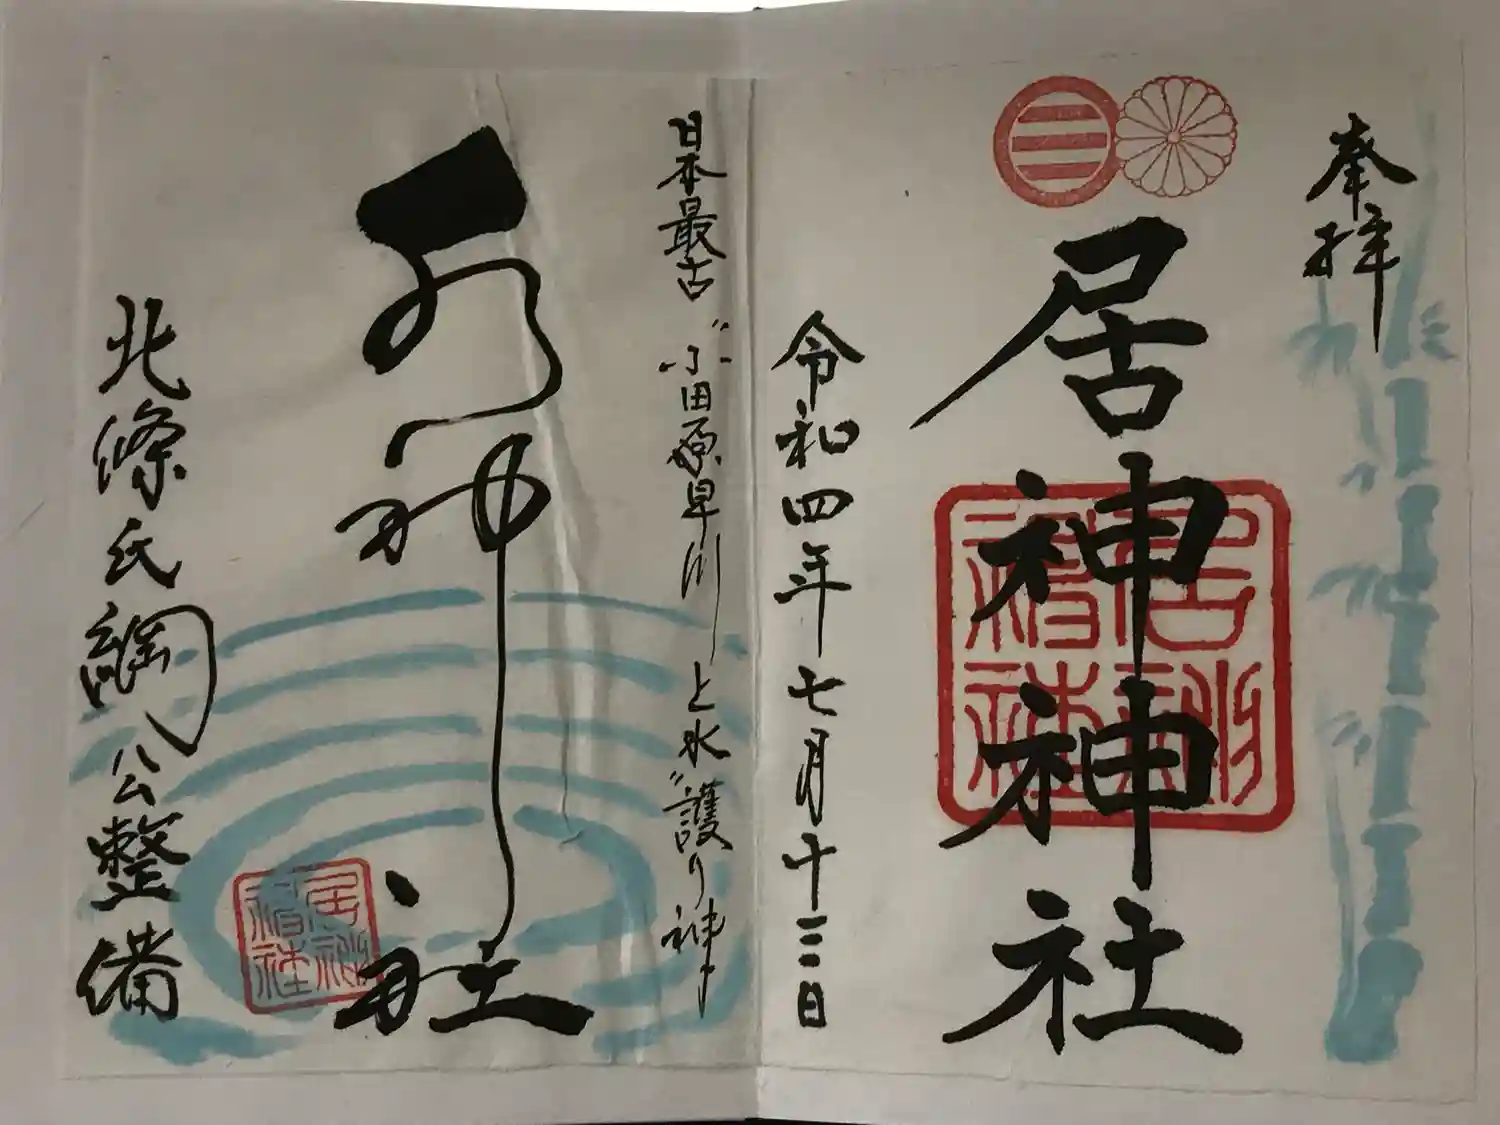 奉拝
居神神社
居神
神社
令和四年七月十三日
日本最古〝小田原早川上水〟護り神
水神社
北條氏綱公整備
居神
神社